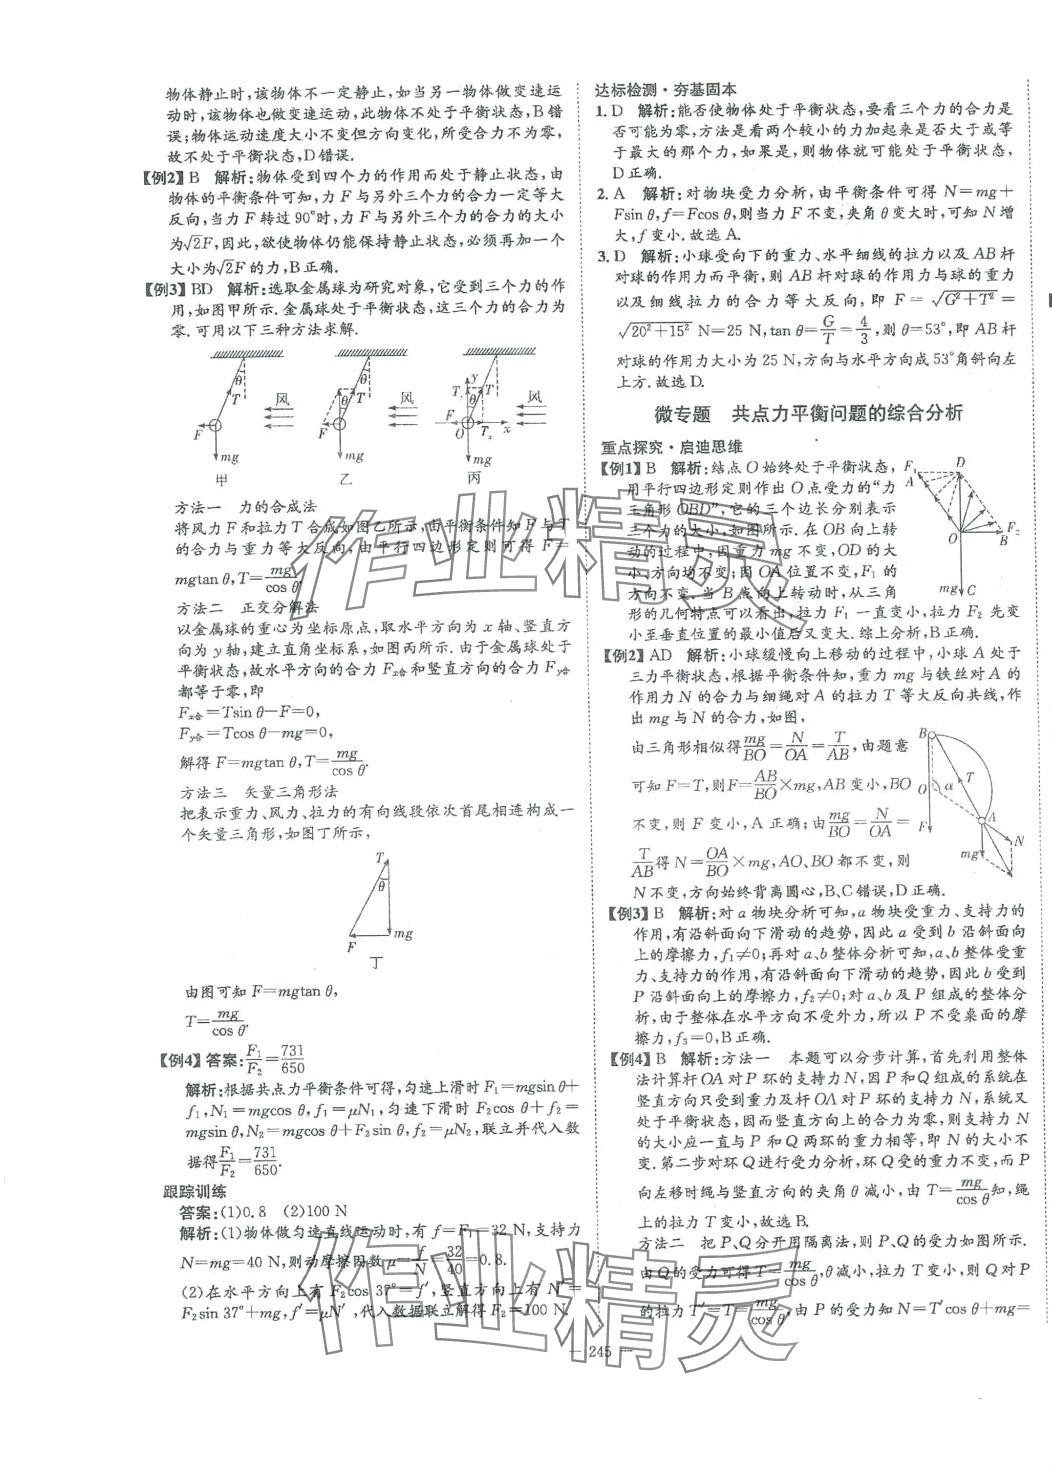 物体静止时,该物体不一定静止,如当另一物体做变速运
动时,该物体也做变速运动,此物体不处于平衡状态,B错
误;物体运动速度大小不变但方向变化,所受合力不为零,
故不处于平衡状态,D错误.
【例2】B 解析:物体受到四个力的作用而处于静止状态,由
物体的平衡条件可知,力F与另外三个力的合力一定等大
反向,当力F转过90°时,力F与另外三个力的合力的大小
为√2F,因此,欲使物体仍能保持静止状态,必须再加一个
大小为√2F的力,B正确.
【例3】BD 解析:选取金属球为研究对象,它受到三个力的作
用,如图甲所示.金属球处于平衡状态,这三个力的合力为
零.可用以下三种方法求解.
θ T 风 F mg 甲
θ T 风 F mg 乙
y T θ T 风 F O Tₓ x mg 丙
方法一 力的合成法
将风力F和拉力T合成如图乙所示,由平衡条件知F与T
的合力与重力等大反向,由平行四边形定则可得F=
mgtan θ,T=mg/cos θ.
方法二 正交分解法
以金属球的重心为坐标原点,取水平方向为x轴、竖直方
向为y轴,建立直角坐标系,如图丙所示.由于金属球处于
平衡状态,故水平方向的合力Fx合和竖直方向的合力Fy合
都等于零,即
Fx合=Tsin θ-F=0,
Fy合=Tcos θ-mg=0,
解得F=mgtan θ,T=mg/cos θ.
方法三 矢量三角形法
把表示重力、风力、拉力的有向线段依次首尾相连构成一
个矢量三角形,如图丁所示,
T θ F mg
丁
由图可知F=mgtan θ,
T=mg/cos θ.
【例4】答案:F₁/F₂=731/650
解析:根据共点力平衡条件可得,匀速上滑时F₁=mgsin θ+
f₁,N₁=mgcos θ,f₁=μN₁,匀速下滑时F₂cos θ+f₂=
mgsin θ,N₂=mgcos θ+F₂sin θ,f₂=μN₂,联立并代入数
据得F₁/F₂=731/650.
跟踪训练
答案:(1)0.8 (2)100 N
解析:(1)物体做匀速直线运动时,有f=F₁=32 N,支持力
N=mg=40 N,则动摩擦因数μ=f/N=32/40=0.8.
(2)在水平方向上有F₂cos 37°=f′,竖直方向上有N′=
F₂sin 37°+mg,f′=μN′,代入数据联立解得F₂=100 N.
达标检测·夯基固本
1. D 解析:能否使物体处于平衡状态,要看三个力的合力是
否可能为零,方法是看两个较小的力加起来是否大于或等
于最大的那个力,如果是,则物体就可能处于平衡状态,
D正确.
2. A 解析:对物块受力分析,由平衡条件可得N=mg+
Fsin θ,f=Fcos θ,则当力F不变,夹角θ变大时,可知N增
大,f变小.故选A.
3. D 解析:小球受向下的重力、水平细线的拉力以及AB杆
对球的作用力而平衡,则AB杆对球的作用力与球的重力
以及细线拉力的合力等大反向,即F=√G²+T²=
√20²+15² N=25 N,tan θ=G/T=4/3,则θ=53°,即AB杆
对球的作用力大小为25 N,方向与水平方向成53°角斜向左
上方.故选D.
微专题 共点力平衡问题的综合分析
重点探究·启迪思维
【例1】B 解析:结点O始终处于平衡状态,
用平行四边形定则作出O点受力的“力
三角形OBD”,它的三个边长分别表示
三个力的大小,如图所示.在OB向上转
动的过程中,因重力mg不变,OD的大
小、方向均不变;因OA位置不变,F₁的
方向不变.当B点向上转动时,从三角
形的几何特点可以看出,拉力F₁一直变小,拉力F₂先变
小至垂直位置的最小值后又变大.综上分析,B正确.
F₁ D A O B F₂ mg C
【例2】AD 解析:小球缓慢向上移动的过程中,小球A处于
三力平衡状态,根据平衡条件知,重力mg与铁丝对A的
作用力N的合力与细绳对A的拉力T等大反向共线,作
出mg与N的合力,如图,
由三角形相似得mg/BO=N/OA=T/AB,由题意
可知F=T,则F=AB/BO×mg,AB变小,BO
不变,则F变小,A正确;由mg/BO=N/OA=
T/AB得N=OA/BO×mg,AO、BO都不变,则
N不变,方向始终背离圆心,B、C错误,D正确.
B T O α A F mg N
【例3】B 解析:对a物块分析可知,a物块受重力、支持力的
作用,有沿斜面向下滑动的趋势,因此a受到b沿斜面向
上的摩擦力,f₁≠0;再对a、b整体分析可知,a、b整体受重
力、支持力的作用,有沿斜面向下滑动的趋势,因此b受到
P沿斜面向上的摩擦力,f₂≠0;对a、b及P组成的整体分
析,由于整体在水平方向不受外力,所以P不受桌面的摩
擦力,f₃=0,B正确.
【例4】B 解析:方法一 本题可以分步计算,首先利用整体
法计算杆OA对P环的支持力N,因P和Q组成的系统在
竖直方向只受到重力及杆OA对P环的支持力N,系统又
处于平衡状态,因而竖直方向上的合力为零,则支持力N
的大小应一直与P和Q两环的重力相等,即N的大小不
变.第二步对环Q进行受力分析,环Q受的重力不变,而P
向左移时绳与竖直方向的夹角θ减小,由T=mg/cos θ知,绳
上的拉力T变小,故选B.
方法二 把P、Q分开用隔离法,则P、Q的受力如图所示.
由Q的受力可得T=mg/cos θ,θ减小,拉力T变小,则Q对P
的拉力T′=T=mg/cos θ,由P的受力知N=T′cos θ+mg=
— 245 —
作业精灵
作业精灵